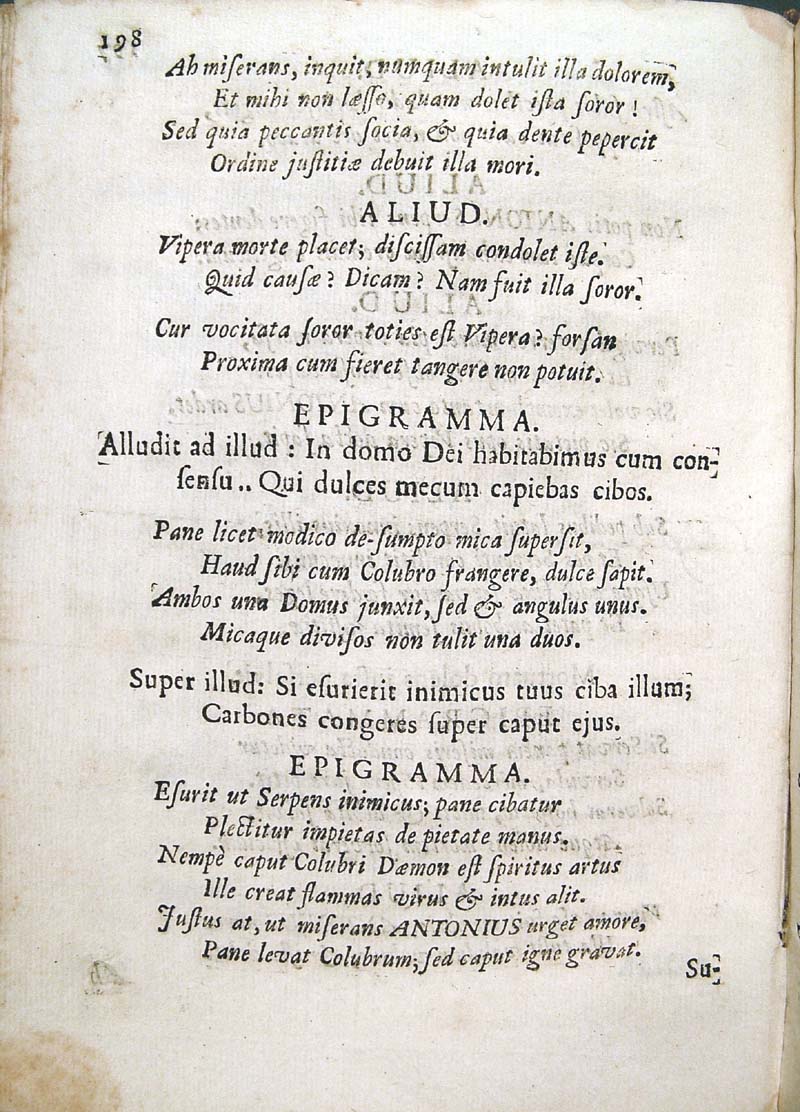 198
Ah miſerans, inquit, numquam intulit illa dolorem,
Et mihi non læſſo, quam dolet iſta ſoror !
Sed quia peccantis ſocia, & quia dente pepercit
Ordine juſtitiæ debuit illa mori.
ALIUD.
Vipera morte placet; diſciſſam condolet iſte.
Quid cauſæ? Dicam? Nam fuit illa ſoror.
Cur vocitata ſoror toties eſt Vipera? forſan
Proxima cum fieret tangere non potuit.
EPIGRAMMA.
Alludit ad illud : In domo Dei habitabimus cum con-
ſenſu.. Qui dulces mecum capiebas cibos.
Pane licet modico de-ſumpto mica ſuperſit,
Haud ſibi cum Colubro frangere, dulce ſapit.
Ambos una Domus junxit, ſed & angulus unus.
Micaque diviſos non tulit una duos.
Super illud: Si eſurierit inimicus tuus ciba illum;
Carbones congeres ſuper caput ejus.
EPIGRAMMA.
Eſurit ut Serpens inimicus; pane cibatur
Plectitur impietas de pietate manus.
Nempè caput Colubri Dæmon eſt ſpiritus artus
Ille creat flammas virus & intus alit.
Juſtus at, ut miſerans ANTONIUS urget amore,
Pane levat Colubrum; ſed caput igne gravat.
Su-